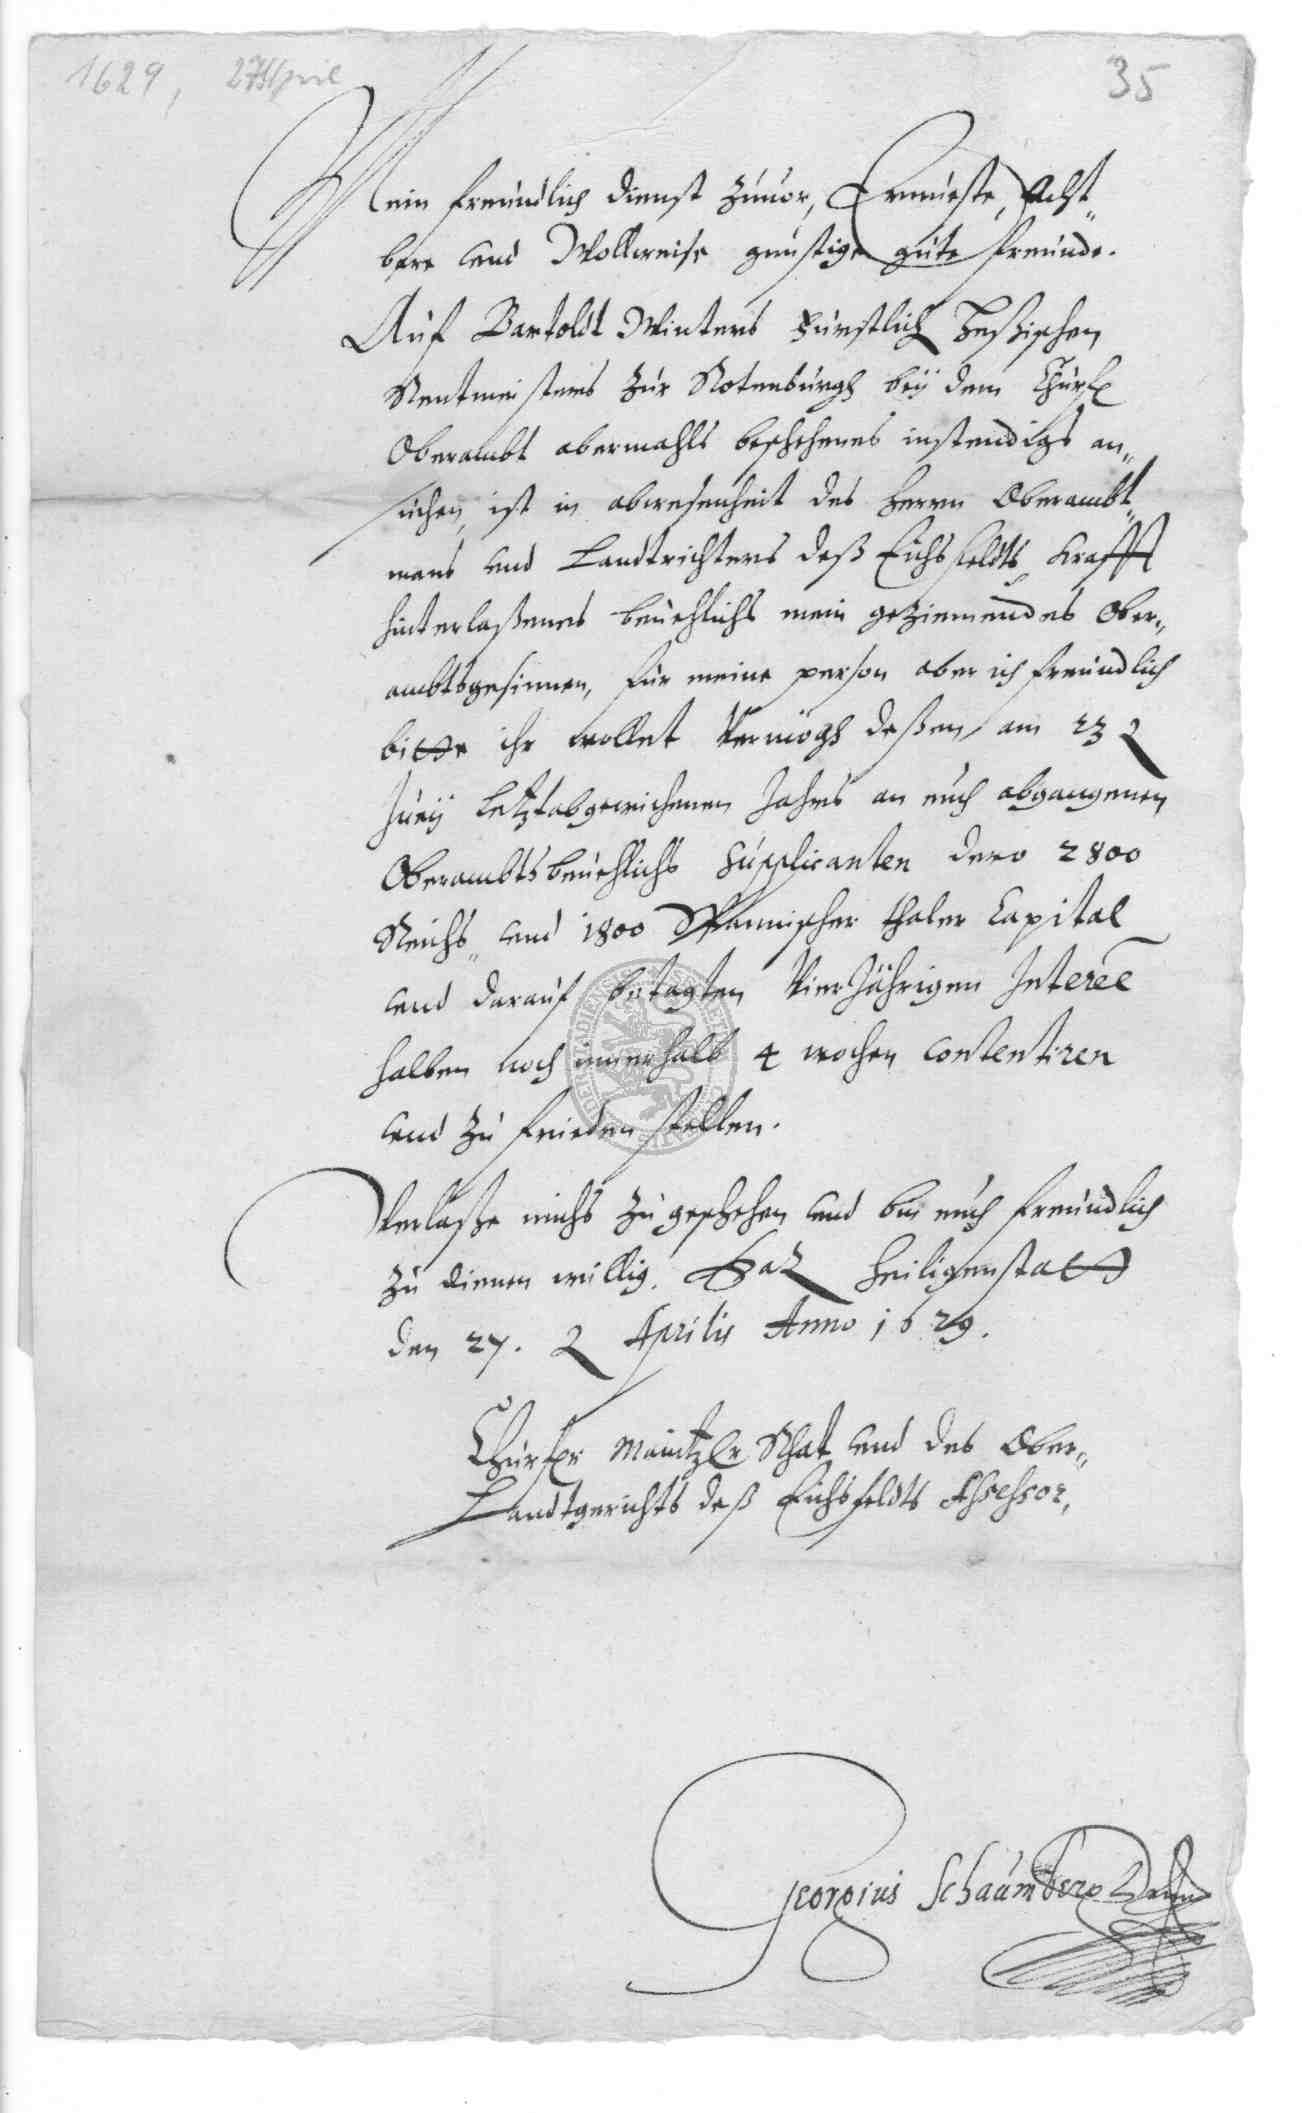 1629, 27 April
35
Mein freundlich dienst zuuor, Ernueste, Acht„
bare vnd Wollweise gunstige gute freunde.
Auf Bartoldt Winters Fürstlich Heßischen
Rentmeisters zur Rotenburgh beÿ dem Churf
Oberambt abermahls beschehenes instendigs an„
suchen, ist in abwesenheit des Herrn Oberambt„
mans vnd Landtrichters deß Eichsfeldts krafft
hinterlaßenes beuehlichs mein geziemendes Ober„
ambtsgesinnen, für meine person aber ich freundlich
bitte ihr wollet Vermögh deßen am 23
letztabgewichenen Jahrs an euch abgangenen
Oberambtsbeuehlichs Supplicanten dero 2800
Reichs„ vnd 1800 Spannischer thaler Capital
vnd darauf betagten Vier Jährigen Interee
halben noch innerhalb 4 wochen contentiren
vnd zu frieden stellen.
Verlaße michs zu geschehen vnd bin euch freundlich
zu dienen willig. Heiligenstatt
den 27. Aprilis Anno 1629.
Churf Maintzr Rhat vnd des Ober„
Landtgerichts deß Eichsfeldts Assessor,
Georgius Schaumberg